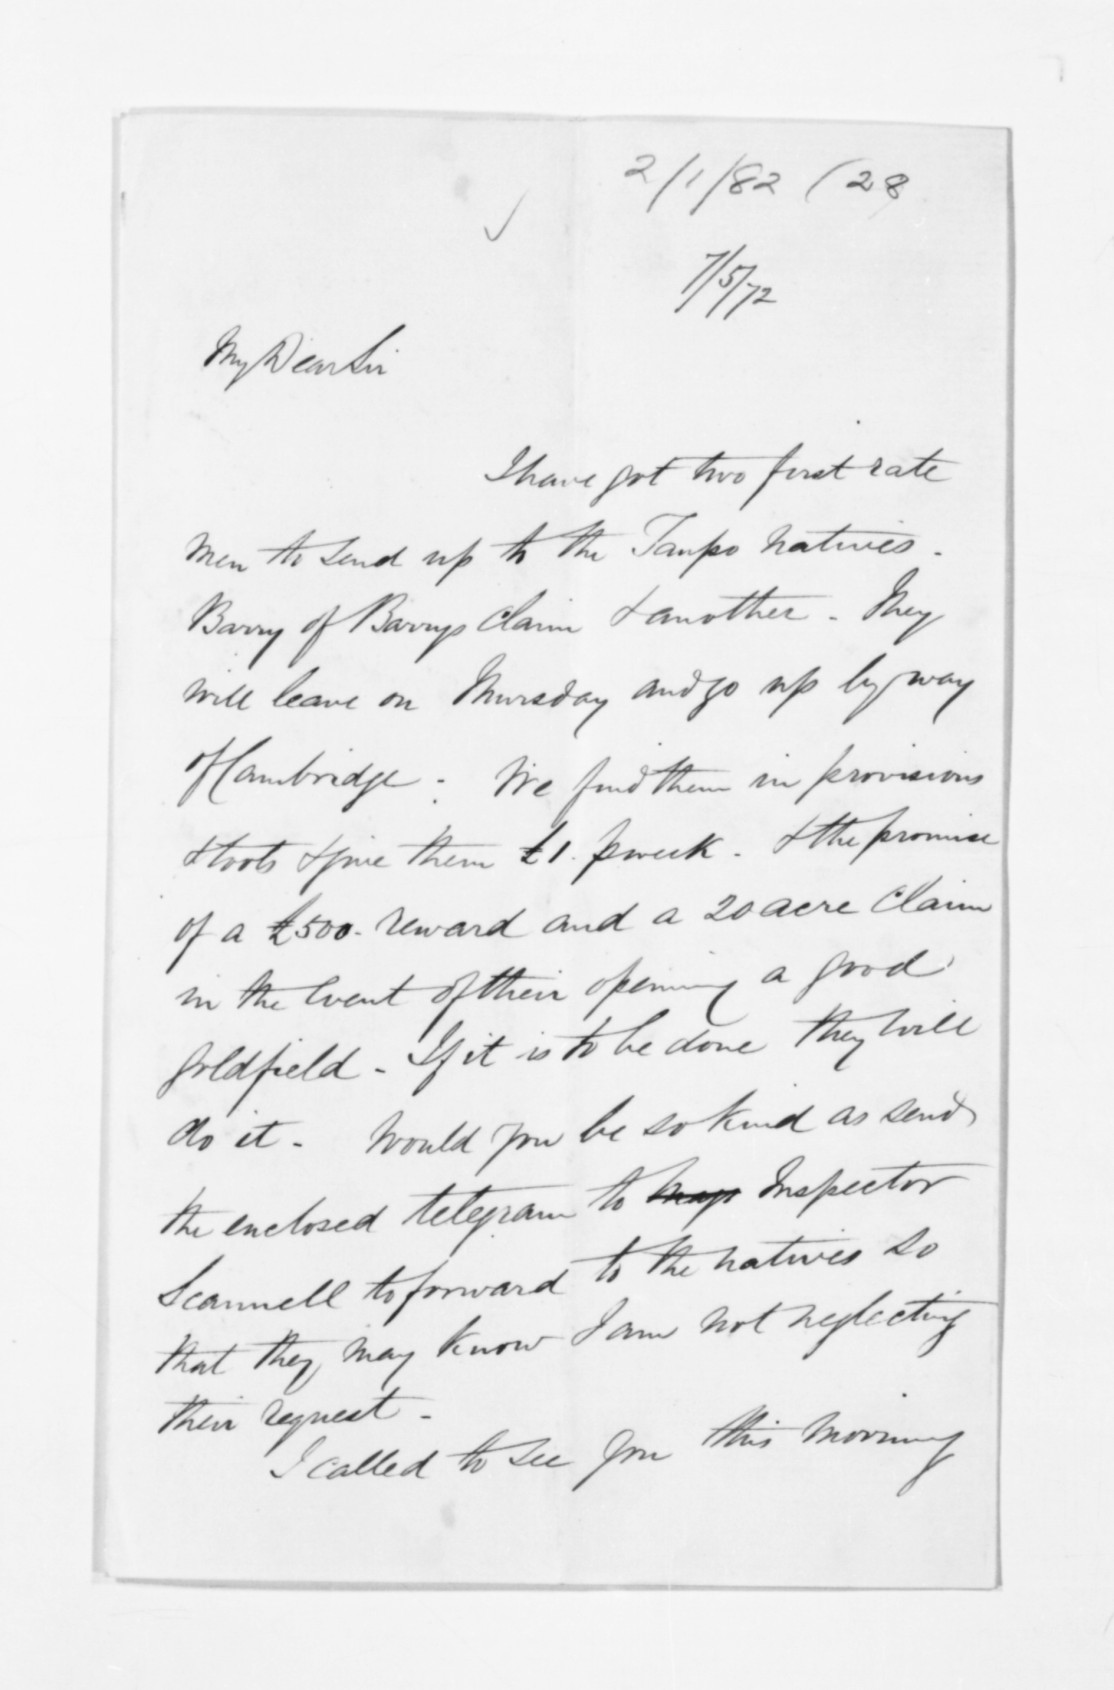 2/1/82 (28
7/5/72
My Dear Sir
I have got two first rate
men to send up to the Taupo natives -
Barry of Barrys claim & another - They
will leave on Thursday and go up by way
of Cambridge - We find them in provisions
& tools & give them £1. p week - & the promise
of a £500 - reward and a 20 acre claim
in the event of their opening a good
goldfield - If it is to be done they will
do it - Would you be so kind as send
the enclosed telegram to Inspector
Scannell to forward to the natives so
that they may know I am not neglecting
their request -
I called to see you this morning